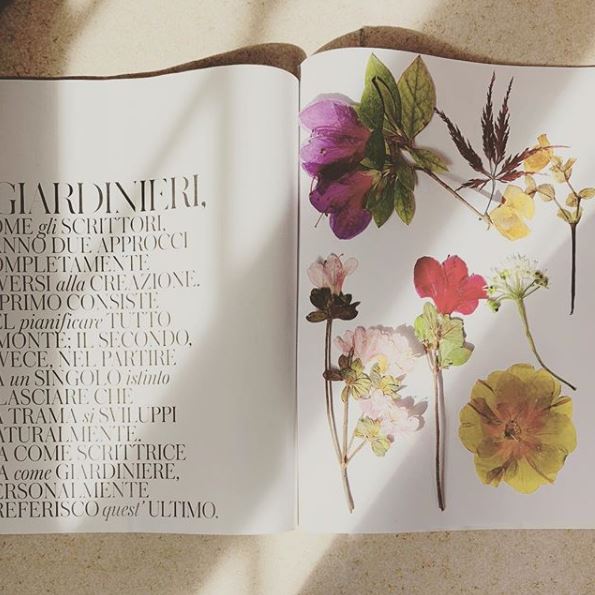 GIARDINIERI,
OME gli SCRITTORI,
ANNO DUE APPROCCI
OMPLETAMENTE
VERSI alla CREAZIONE.
PRIMO CONSISTE
EL pianificare TUTTO
MONTE; IL SECONDO,
VECE, NEL PARTIRE
A un SINGOLO istinto
LASCIARE CHE
A TRAMA si SVILUPPI
ATURALMENTE.
A COME SCRITTRICE
A come GIARDINIERE,
ERSONALMENTE
REFERISCO quest' ULTIMO.